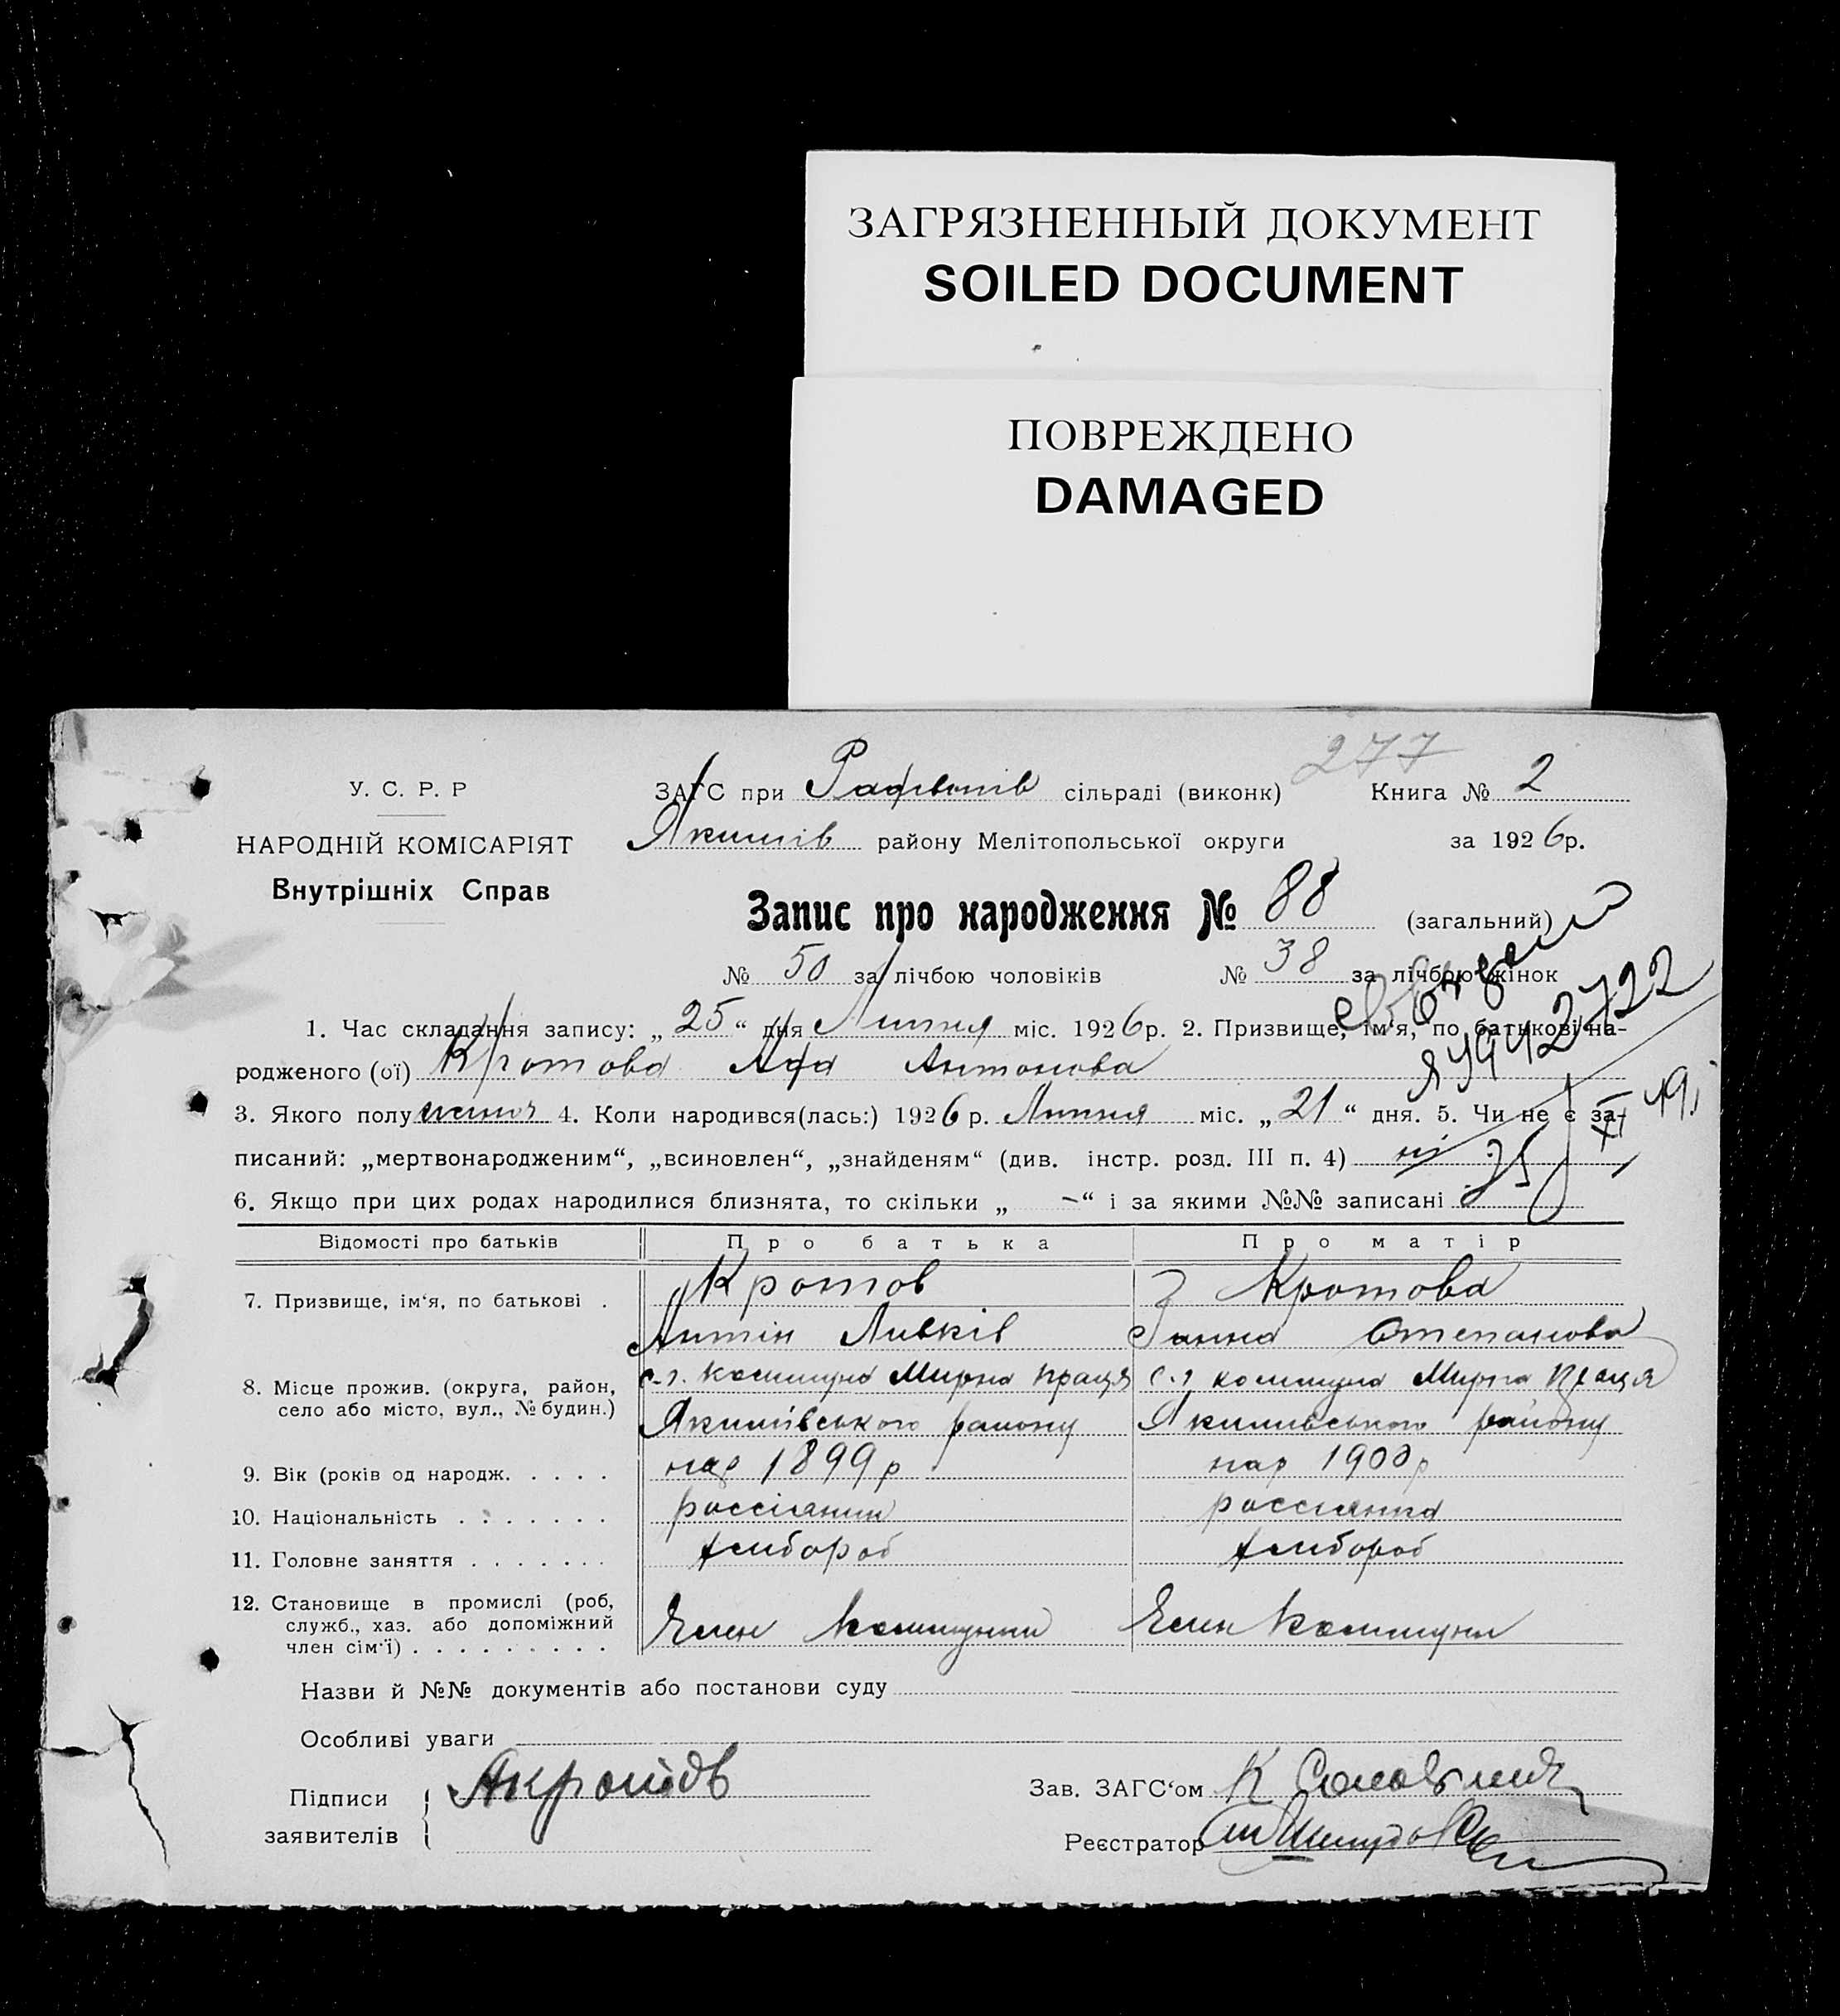 ЗАГРЯЗНЕННЫЙ ДОКУМЕНТ
SOILED DOCUMENT
ПОВРЕЖДЕНО
DAMAGED
277
У. С. Р. Р
НАРОДНІЙ КОМІСАРІЯТ
Внутрішніх Справ
ЗАГС при сільраді (виконк) Книга № 2
Якимів району Мелітопольської округи за 1926р.
Запис про народження № 88 (загальний)
№ 50 за лічбою чоловіків № 38 за лічбою жінок
1. Час складання запису: „ 25 “ дня Липня міс. 1926р. 2. Призвище, ім'я, по батькові на-
родженого (ої) Кротова Ада Антонова
3. Якого полу жіноч 4. Коли народився(лась:) 1926р. Липня міс. „ 21 “ дня. 5. Чи не є за-
писаний: „мертвонародженим“, „всиновлен“, „знайденям“ (див. інстр. розд. III п. 4) ні
6. Якщо при цих родах народилися близнята, то скільки „ –“ і за якими №№ записані
Відомості про батьків Про батька Про матір
7. Призвище, ім'я, по батькові . Кротов Кротова
Антін Ганна Степанова
8. Місце прожив. (округа, район, село або місто, вул., № будин.) с.-г. коммуна Мирна праця с.г коммуна Мирна Праця
Якимівського району Якимівського району
9. Вік (років од народж. . . . . нар 1899р нар 1900р
10. Національність . . . . . . . россіянин россіянка
11. Головне заняття . . . . . . . хлібороб хлібороб
12. Становище в промислі (роб, служб., хаз. або допоміжний член сім'ї) . . . . . . . . . Член Коммуни Член Коммуни
Назви й №№ документів або постанови суду
Особливі уваги
Підписи заявителів АКротов
Зав. ЗАГС'ом К
Реєстратор